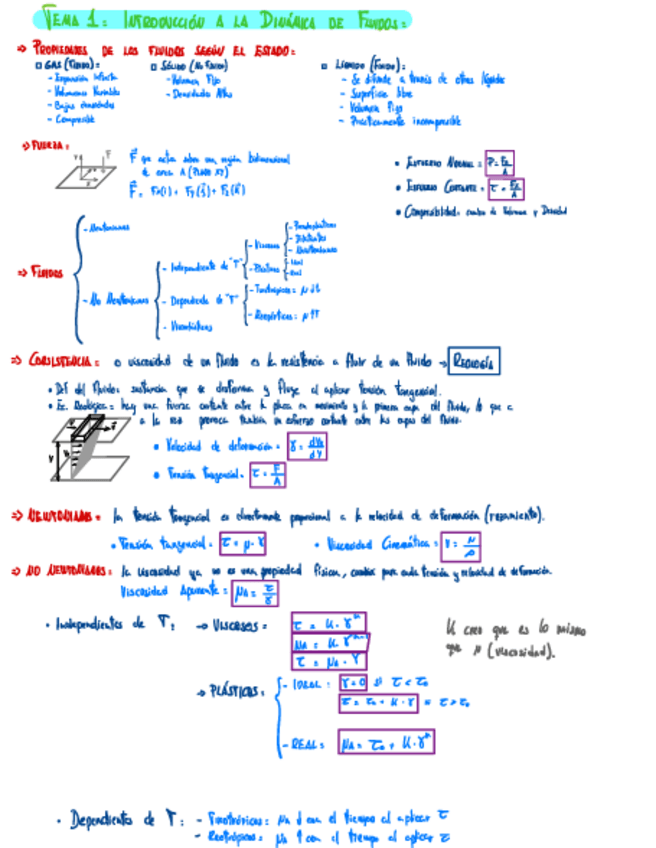 TEMA 1: INTRODUCCIÓN A LA DINÁMICA DE FLUIDOS:
⇒ PROPIEDADES DE LOS FLUIDOS SEGÚN EL ESTADO:
□ GAS (FLUIDO):
- Expansión Infinita
- Volumenes Variables
- Bajas densidades
- Compresible
□ SÓLIDO (No FLUIDO)
- Volumen Fijo
- Densidades Altas
□ LÍQUIDO (FLUIDO):
- Se difunde a través de otros líquidos
- Superficie libre
- Volumen Fijo
- Prácticamente incompresible
⇒ FUERZA:
F que actúa sobre una región bidimensional
de area A (PLANO XY)
F = Fx(i) + Fy(j) + Fz(k)
• ESFUERZO NORMAL = P = Fz/A
• ESFUERZO CORTANTE = τ = Fx/A
• Compresibilidad: cambio de Volumen y Densidad
⇒ FLUIDOS
- Newtonianos
- No Newtonianos
- Independiente de "T"
- Viscosos
- Pseudoplásticos
- Dilatantes
- Newtonianos
- Plásticos
- Ideal
- Real
- Dependiente de "T"
- Tixotrópicos = μ ↓t
- Reopécticos: μ ↑T
- Viscoelásticos
⇒ CONSISTENCIA = o viscosidad de un fluido es la resistencia a fluir de un fluido → REOLOGÍA
• Def del fluido: sustancia que se deforma y fluye al aplicar tensión tangencial.
• Ec. Reológica = hay una fuerza cortante entre la placa en movimiento y la primera capa del fluido, lo que a
a la vez provoca también un esfuerzo cortante entre las capas del fluido.
• Velocidad de deformación = γ = dVx/dY
• Tensión Tangencial = τ = F/A
⇒ NEWTONIANOS = la tensión tangencial es directamente proporcional a la velocidad de deformación (rozamiento).
• Tensión tangencial = τ = μ · γ
• Viscosidad Cinemática = ν = μ/ρ
⇒ NO NEWTONIANOS = la viscosidad ya no es una propiedad física, cambia para cada tensión y velocidad de deformación.
Viscosidad Aparente = μA = τ/γ
• Independientes de T:
→ VISCOSOS =
τ = K · γⁿ
μA = K γⁿ⁻¹
τ = μA · γ
→ PLÁSTICOS:
- IDEAL: γ = 0 si τ < τ₀
τ = τ₀ + K · γ si τ > τ₀
- REAL: μA = τ₀ + K · γⁿ
K creo que es lo mismo
que μ (viscosidad).
• Dependientes de T:
- Tixotrópicos: μA ↓ con el tiempo al aplicar τ
- Reotrópicos = μA ↑ con el tiempo al aplicar τ